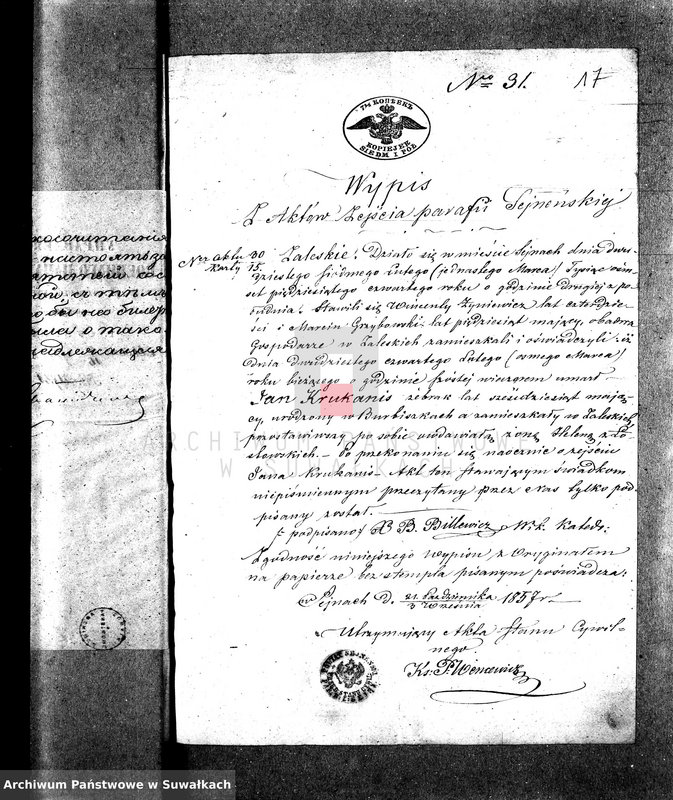 No 31. 17
7½ КОПѢЕКЪ
KOPIEJEK
SIEDM I PÓŁ
Wypis
Z Aktów Zejścia parafii Sejneńskiej
Nr Aktu 30
Karty 15.
Zaleskie. Działo się w mieście Sejnach dnia dwu-
dziestego siódmego lutego (jedenastego Marca) Tysiąc ośm-
set pięćdziesiątego czwartego roku o godzinie drugiej z po-
łudnia. Stawili się Wincenty Żyniewicz lat czterdzie-
ści i Marcin Grzybowski, lat pięćdziesiąt mający, obadwa
Gospodarze w Zaleskich zamieszkali i oświadczyli iż
dnia dwudziestego czwartego lutego (ósmego Marca)
roku bieżącego o godzinie szóstej wieczorem umarł
Jan Krukanis żebrak lat sześćdziesiąt mają-
cy, urodzony w Burbiszkach a zamieszkały w Zaleskich,
pozostawiwszy po sobie owdowiałą żonę Helenę z
słowskich. – Po przekonaniu się naocznie o zejściu
Jana Krukanis – Akt ten stawającym świadkom
niepiśmiennym przeczytany przez Nas tylko pod-
pisany został.
(podpisano) X B. Billewicz W.k. Katedr:
Zgodność niniejszego Wypisu z Oryginałem
na papierze bez stempla pisanym poświadcza:
w Sejnach d. 21. Października 1857 r.
3 Września
Utrzymujący Akta Stanu Cywil-
nego
Ks: P. Wencewicz
ARCHIWUM PAŃSTWOWE
W SUWAŁKACH
Archiwum Państwowe w Suwałkach